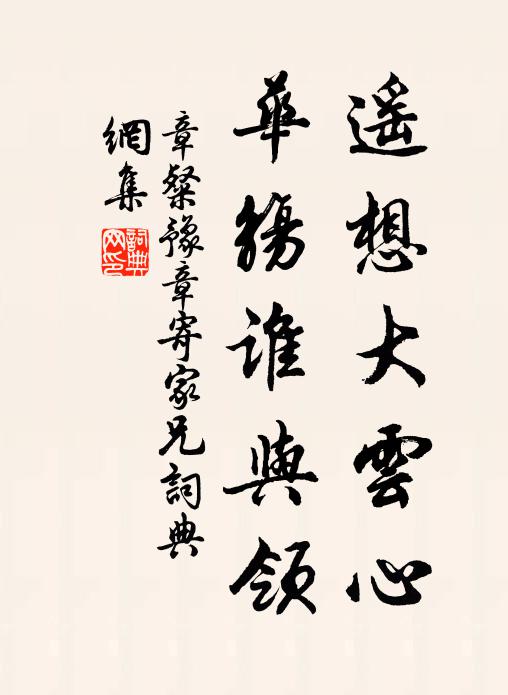 遥想大雲心
華觴誰與領
章粲豫章寄家兄詞典
網集
詞典
网印